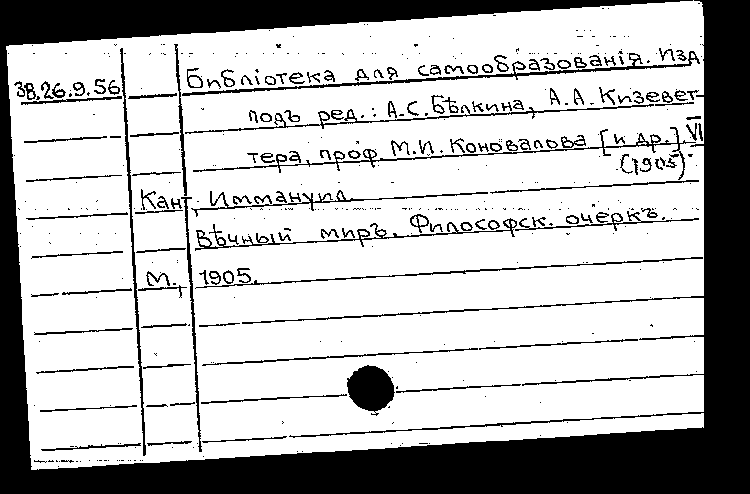 38.26.9.56 Библіотека для самообразованія. Изд.
подъ ред.: А.С.Бѣлкина, А.А.Кизевет-
тера, проф. М.И.Коновалова [и др.]. VI
(1905)
Кант, Иммануил.
Вѣчный миръ. Философск. очеркъ.
М., 1905.